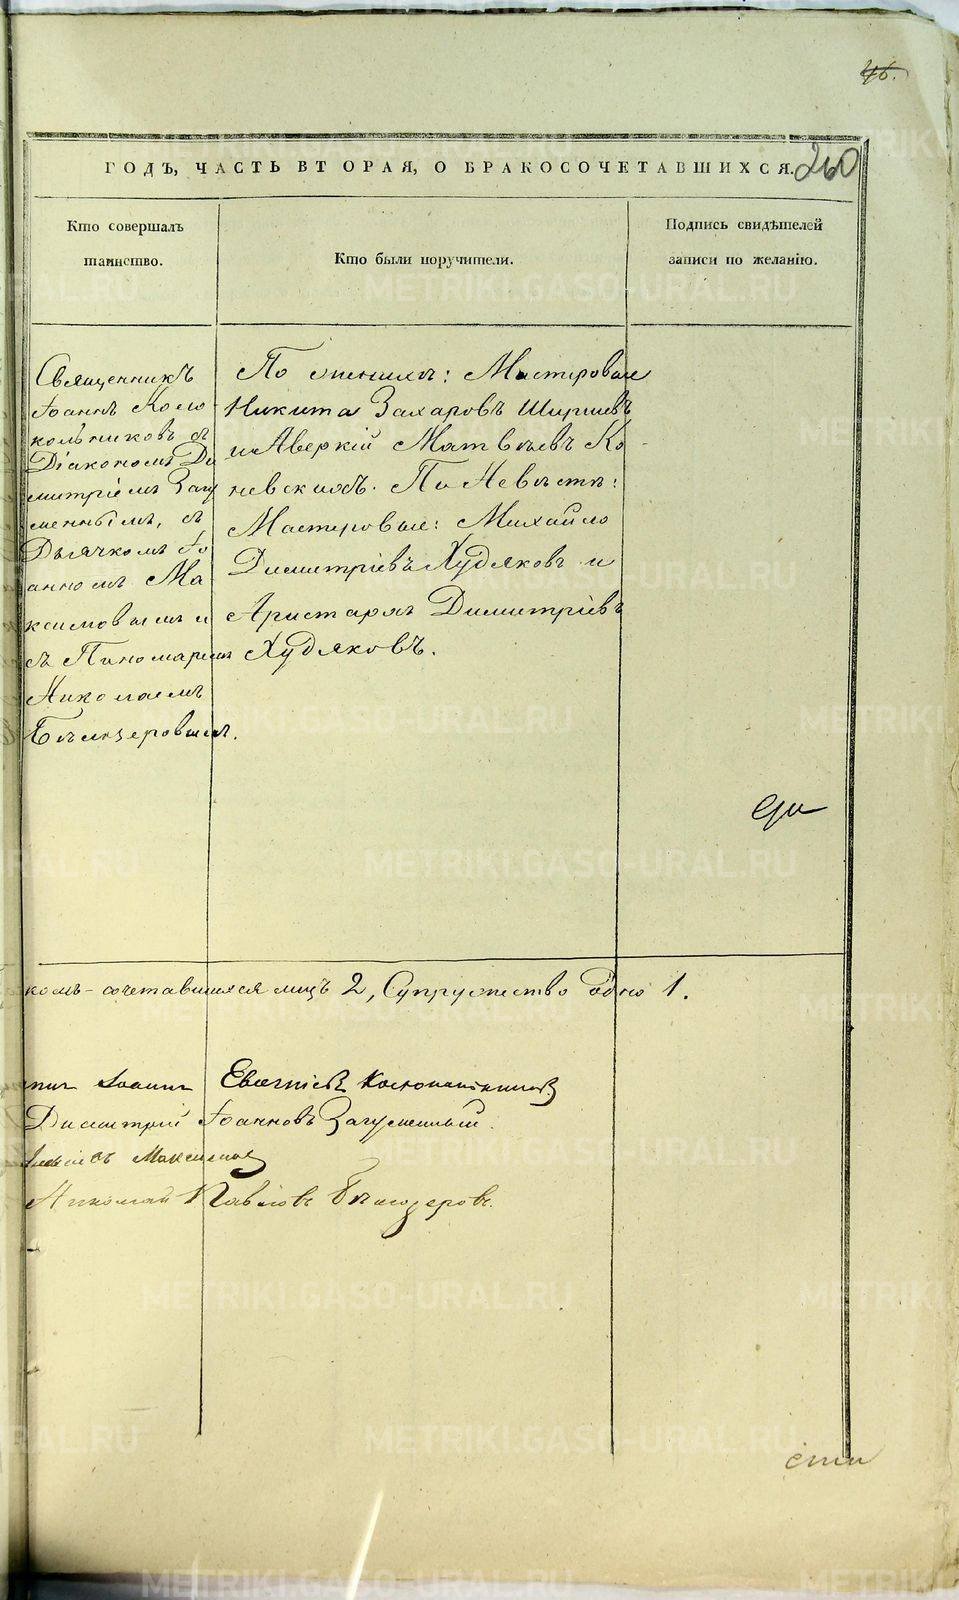 46.
260
ГОДЪ, ЧАСТЬ ВТОРАЯ, О БРАКОСОЧЕТАВШИХСЯ.
Кто совершалъ таинство.
Кто были поручители.
Подпись свидѣтелей записи по желанію.
Священникъ
Іоаннъ Коло
кольниковъ съ
Діакономъ Ди
митріемъ Загу
меннымъ, съ
Дьячкомъ Іо
анномъ Ма
ксимовымъ и
съ Пономаремъ
Николаемъ
Бѣлозеровымъ.
По женихѣ: Мастеровые
Никита Захаровъ Ширяевъ
и Аверкій Матвѣевъ Ко-
невскихъ. По Невѣстѣ:
Мастеровые: Михайло
Димитріевъ Худяковъ и
Аристархъ Димитріевъ
Худяковъ.
комъ-сочетавшихся лицъ 2, Супружество одно 1.
Іоаннъ Евгеніевъ Колокольниковъ
Димитрій Іоанновъ Загуменный.
Максимовъ
Николай Павловъ Бѣлозеровъ.
METRIKI.GASO-URAL.RU